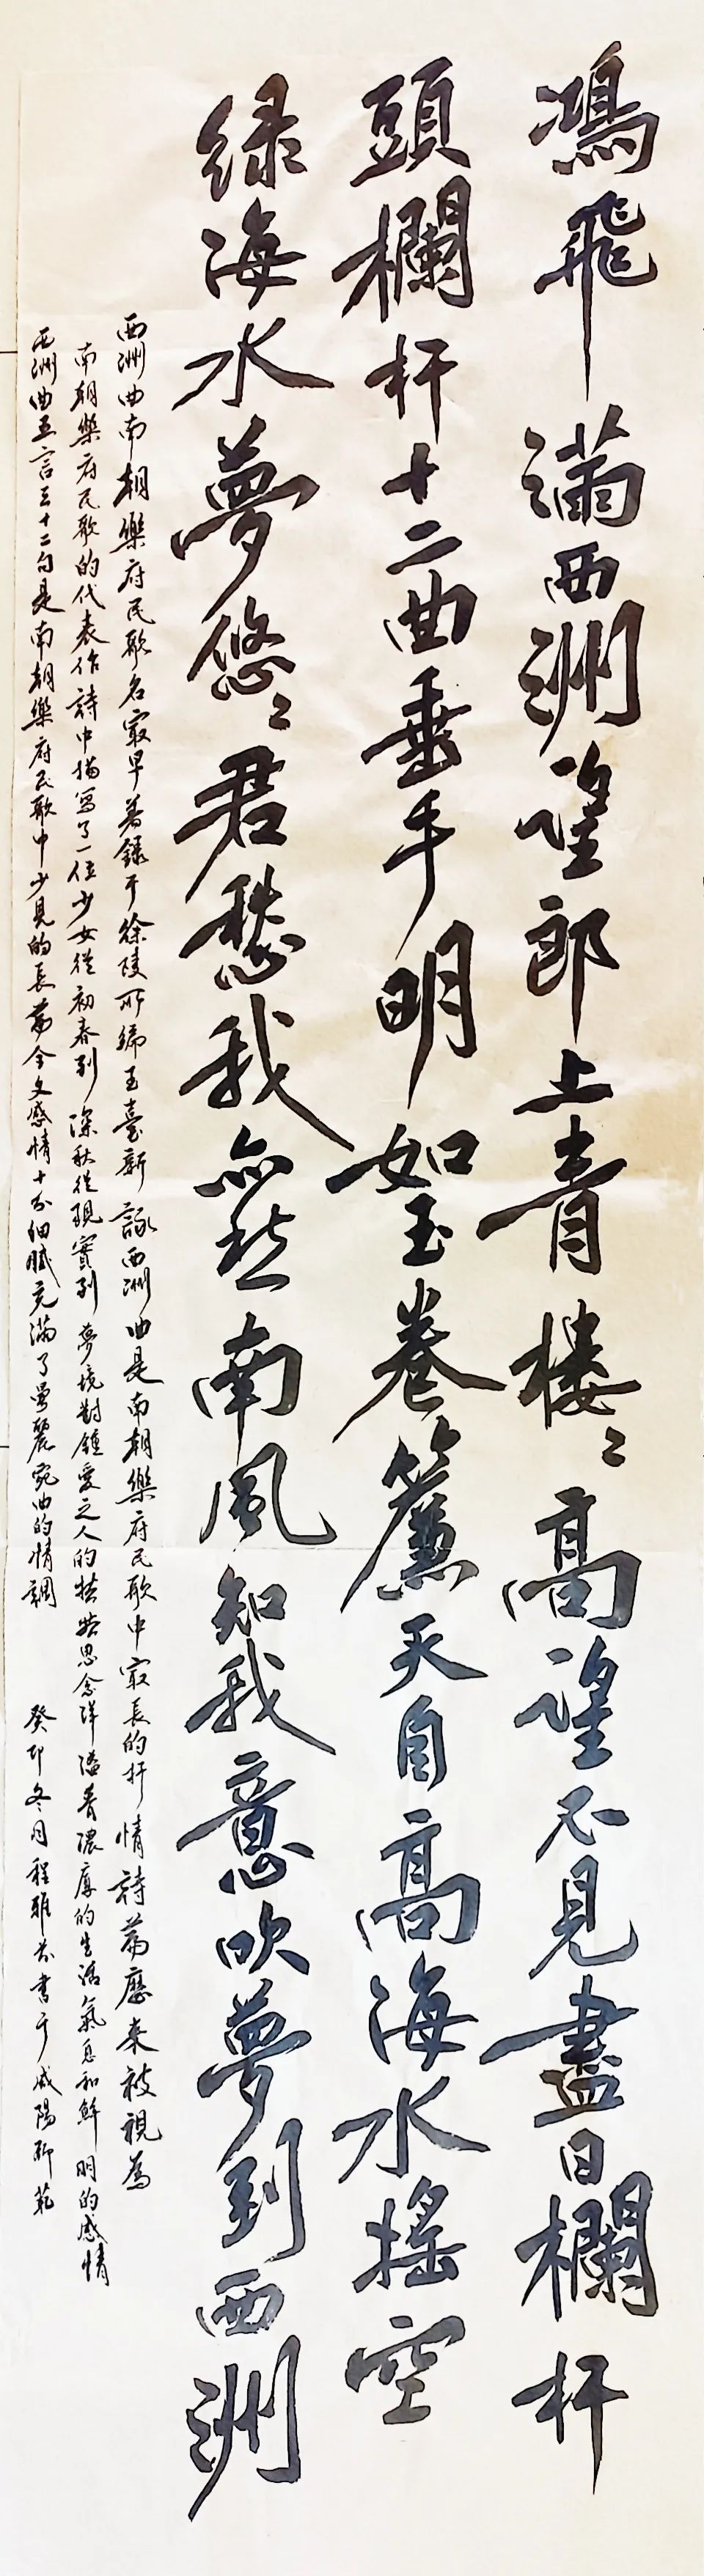 鴻飛滿西洲望郎上青樓〻高望不見盡日欄杆
頭欄杆十二曲垂手明如玉卷簾天自高海水搖空
緑海水夢悠〻君愁我亦愁南風知我意吹夢到西洲
西洲曲南朝樂府民歌名最早著録于徐陵所編玉臺新詠西洲曲是南朝樂府民歌中最長的抒情詩篇歷來被視為
南朝樂府民歌的代表作詩中描寫了一位少女從初春到深秋從現實到夢境對鍾愛之人的苦苦思念洋溢着濃厚的生活氣息和鮮明的感情
西洲曲五言三十二句是南朝樂府民歌中少見的長篇全文感情十分細膩充滿了曼麗宛曲的情調 癸卯冬月程雅 書于咸陽師範